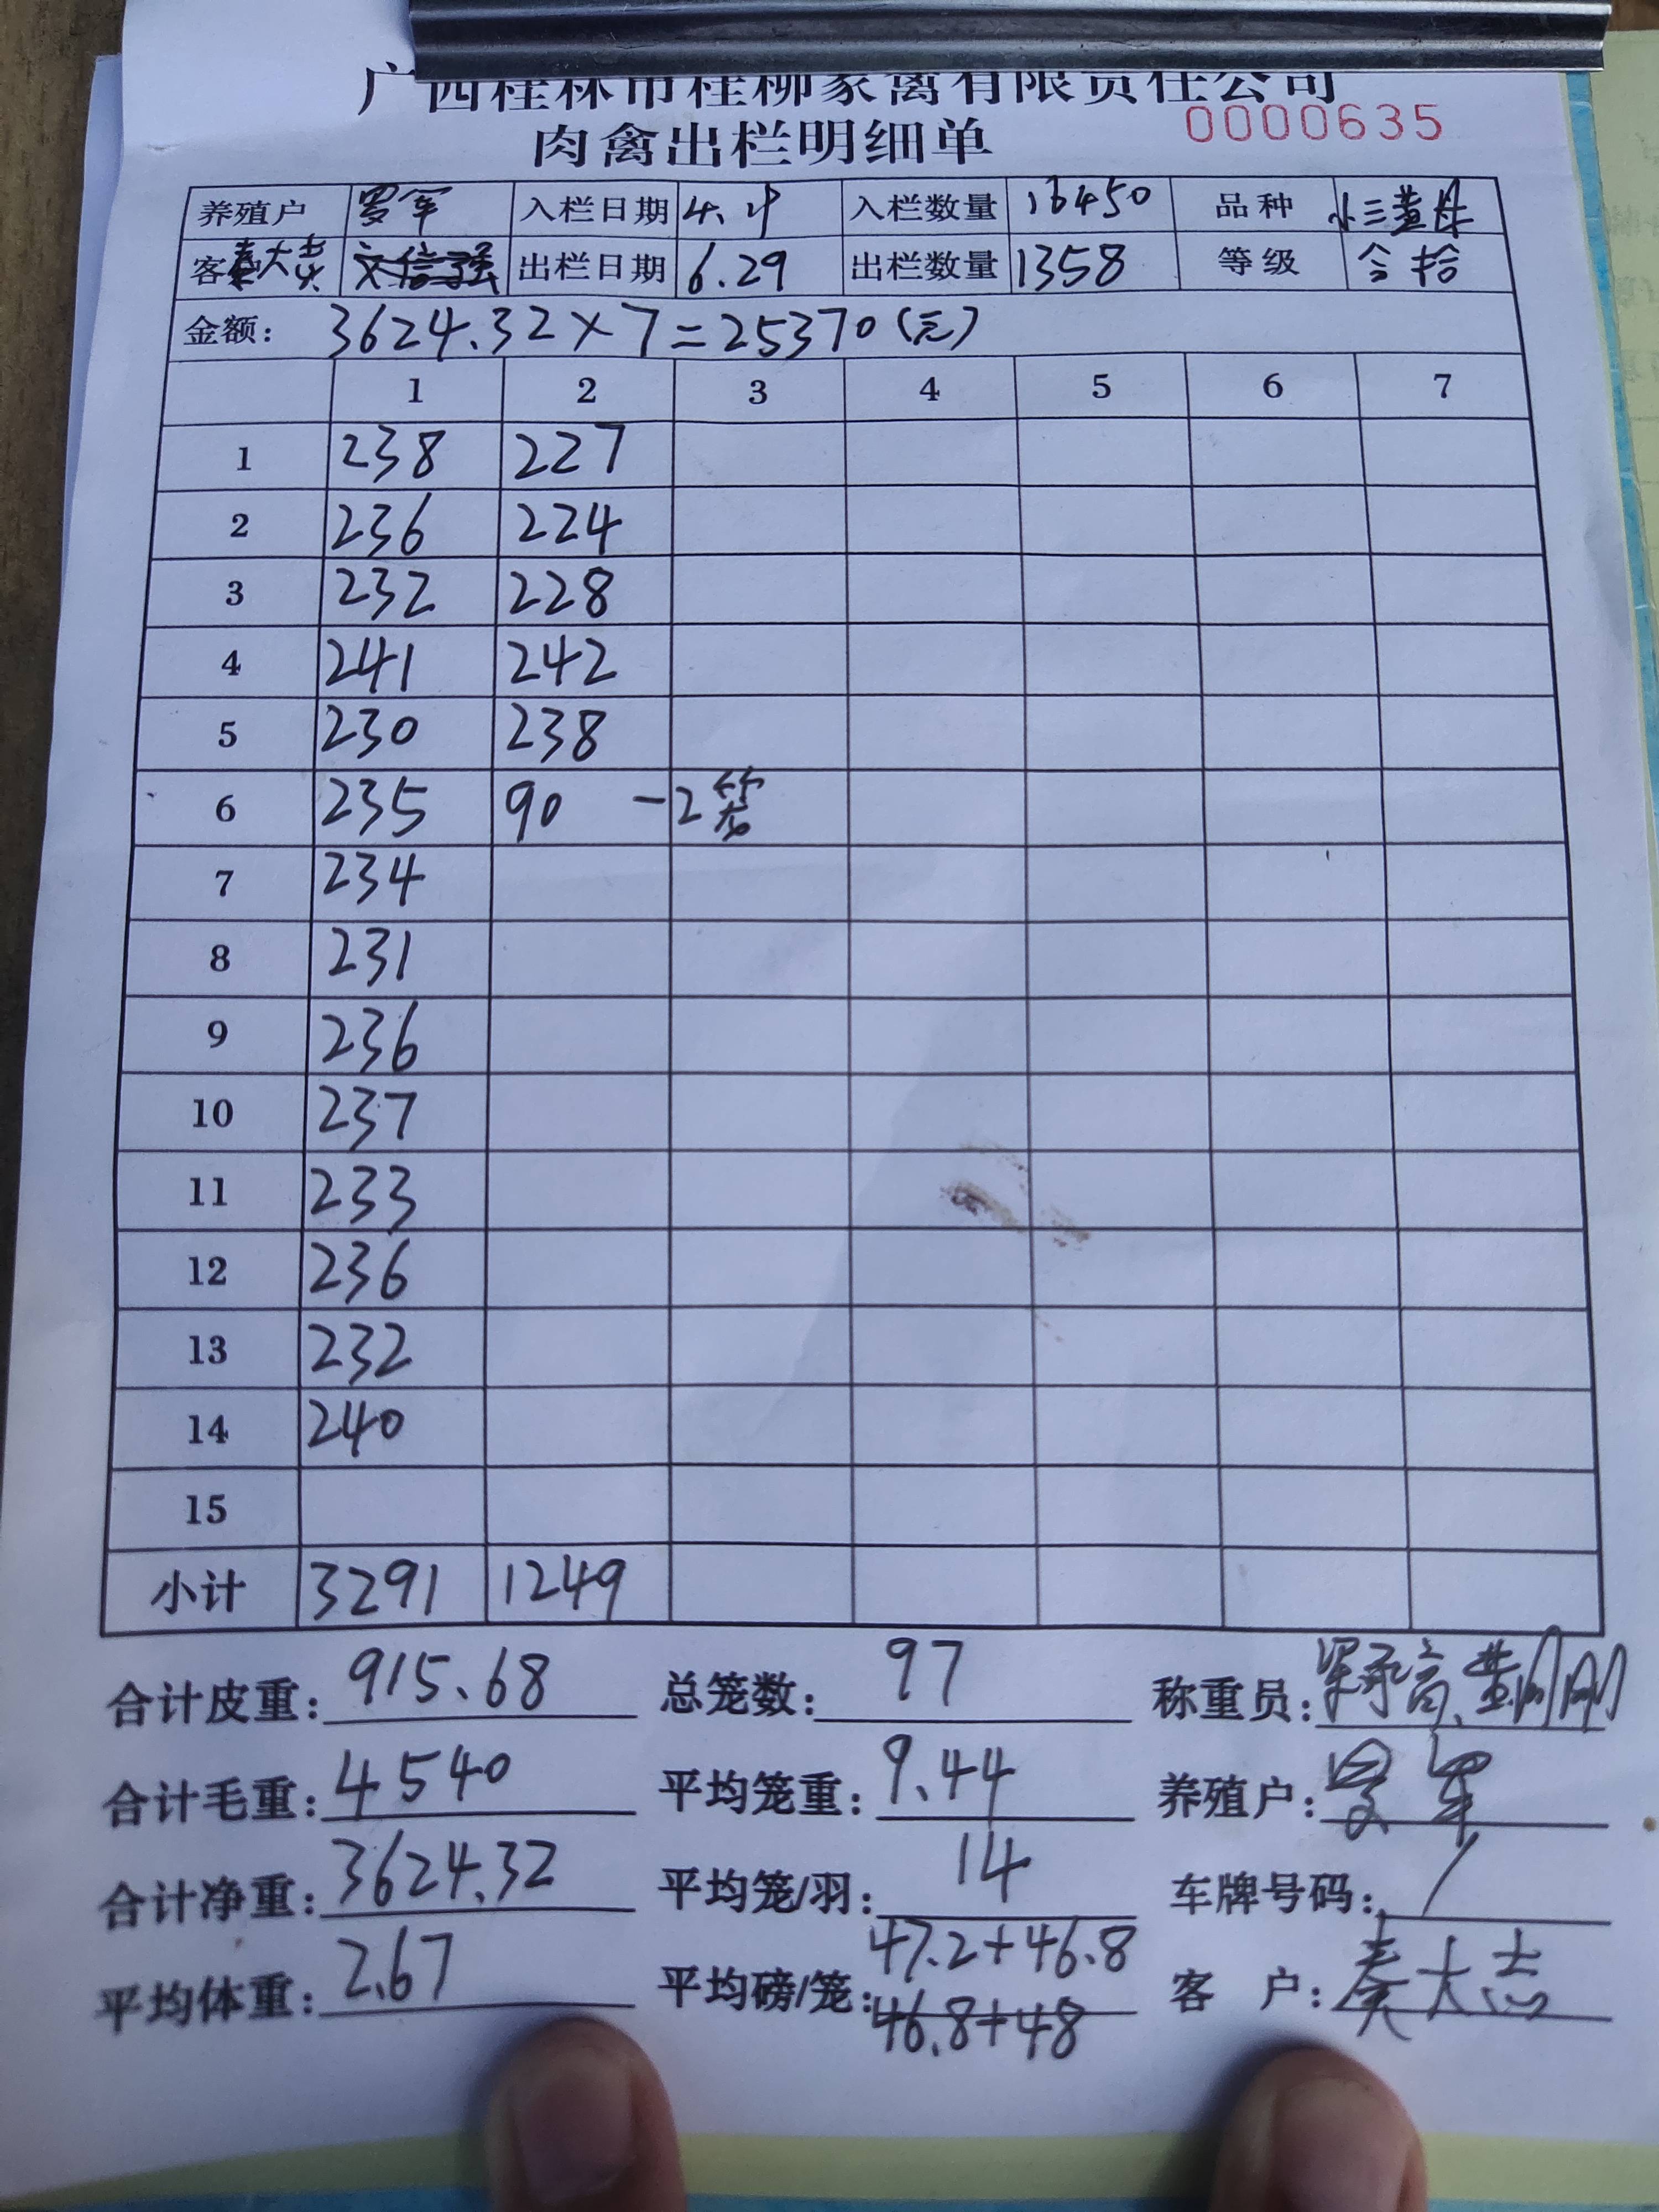 广西桂林市桂柳家禽有限责任公司
肉禽出栏明细单 0000635
养殖户 罗军 入栏日期 4. 入栏数量 16450 品种 小三黄母
客 秦大志 文信强 出栏日期 6.29 出栏数量 1358 等级 合格
金额: 3624.32×7=25370(元)
1 2 3 4 5 6 7
1 238 227
2 236 224
3 232 228
4 241 242
5 230 238
6 235 90 -2笼
7 234
8 231
9 236
10 237
11 233
12 236
13 232
14 240
15
小计 3291 1249
合计皮重: 915.68 总笼数: 97 称重员: 黄刚刚
合计毛重: 4540 平均笼重: 9.44 养殖户: 罗军
合计净重: 3624.32 平均笼/羽: 14 车牌号码: /
平均体重: 2.67 平均磅/笼: 47.2+46.8 客户: 秦大志
46.8+48